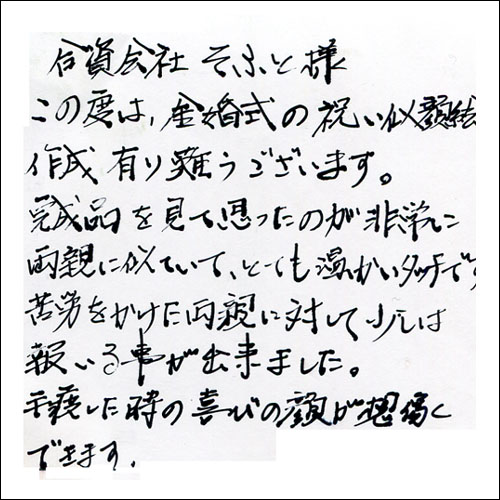 合資会社 そふと様
この度は、金婚式の祝い似顔絵
作成 有り難うございます。
完成品を見て思ったのが非常に
両親に似ていて、とっても温かいタッチです
苦労をかけた両親に対して少しは
報いる事が出来ました。
手渡した時の喜びの顔が想像
できます。